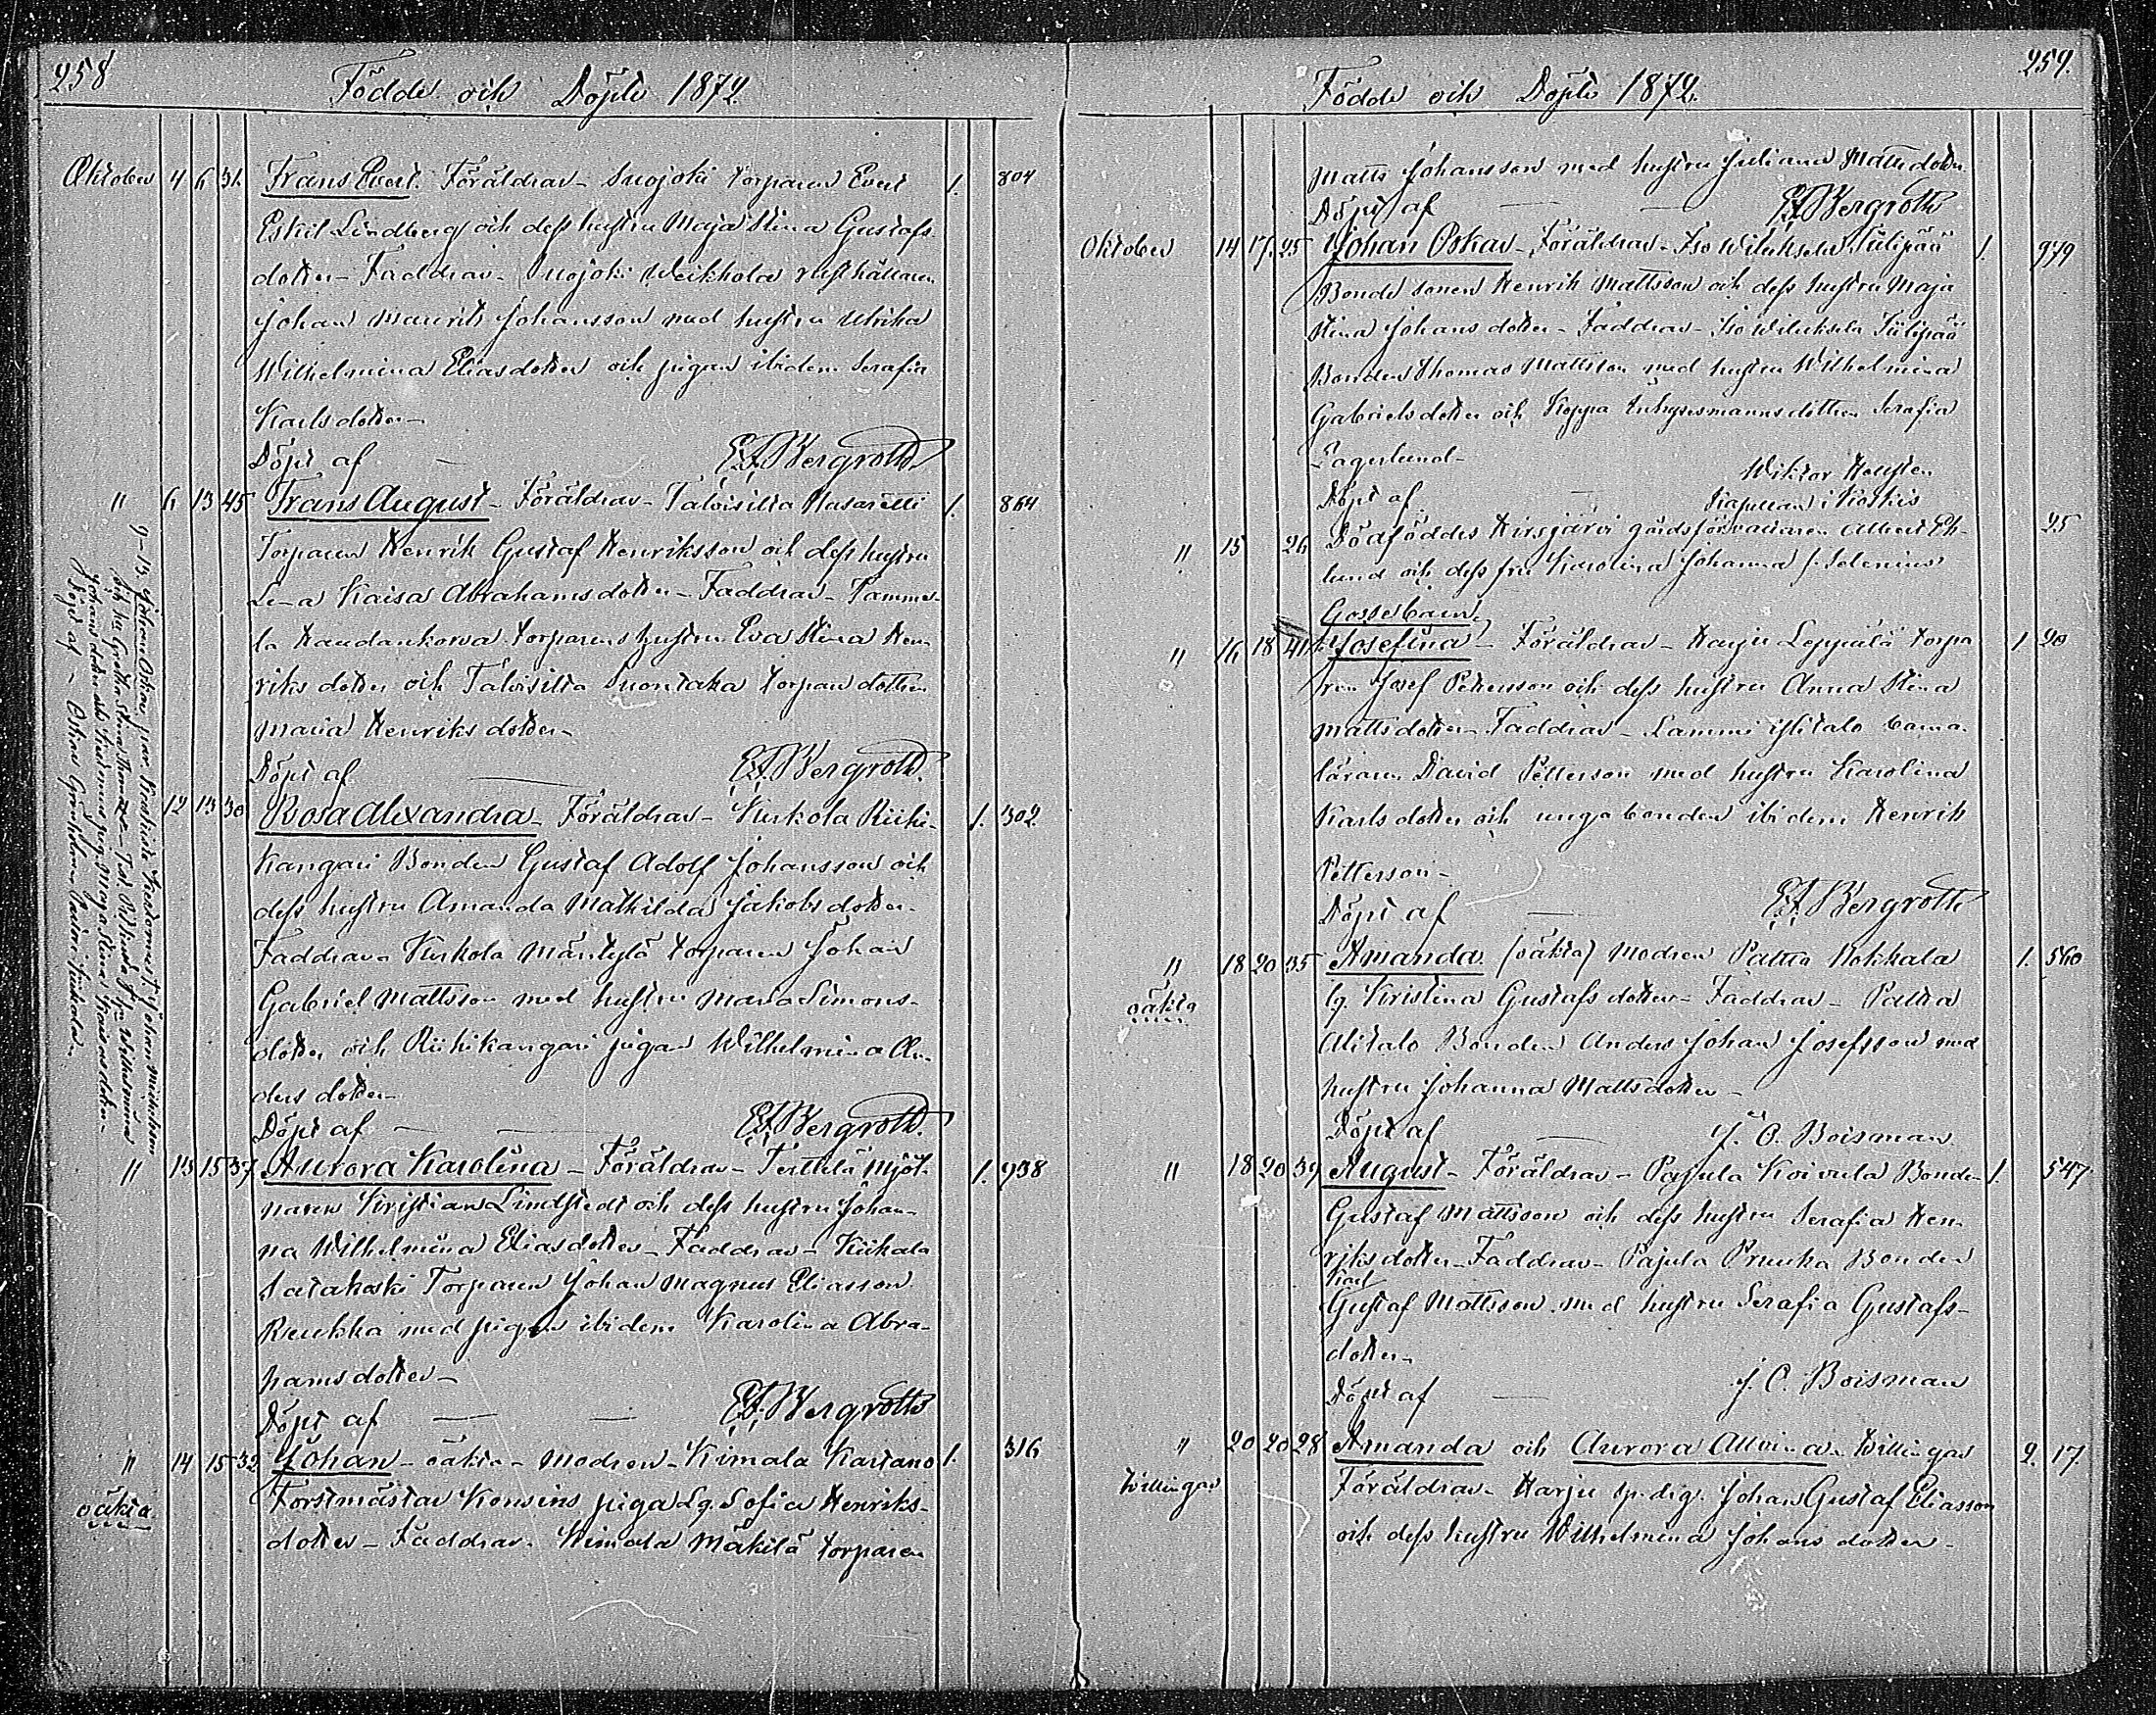 258
Födde och Döpte 1872.
Oktober 4 6 31 Frans Evert. Föräldrar - Suojoki torparen Evert 1. 804
Eskil Lindberg och dess hustru Maja Stina Gustafs
dotter - Faddrar - Suojoki Weikkola rusthållaren
Johan Maurits Johansson med hustru Ulrika
Wilhelmina Eliasdotter och pigan ibidem Serafia
Karlsdotter -
Döpt af — E.F. Bergroth.
" 6 13 45 Frans August - Föräldrar - Talvisilta Nasaretti 1. 864
Torparen Henrik Gustaf Henriksson och dess hustru
Lena Kaisa Abrahamsdotter - Faddrar - Tamme-
la Haudankorva torparens hustru Eva Stina Hen-
riks dotter och Talvisilta Suontaka torpare dottren
Maria Henriks dotter -
Döpt af — E.F. Bergroth.
12 13 30 Rosa Alexandra - Föräldrar - Kirkola Riihi- 1. 302
kangari Bonden Gustaf Adolf Johansson och
dess hustru Amanda Mathilda Jakobs dotter -
Faddrar - Kirkola Mäntylä torparen Johan
Gabriel Mattsson med hustru Maria Simons-
dotter och Riihikangari pigan Wilhelmina An-
ders dotter -
Döpt af — — E.F. Bergroth.
" 13 15 37 Aurora Karolina - Föräldrar - Terttilä mjöl- 1. 938
naren Kristian Lindstedt och dess hustru Johan-
na Wilhelmina Eliasdotter - Faddrar - Kiikala
Satakoski Torparen Johan Magnus Eliasson
Ruukka med pigan ibidem Karolina Abra-
hamsdotter -
Döpt af — — E.F. Bergroth
" 14 15 32 Johan - oäkta - Modren - Kimala Kartano 1. 316
oäkta Forstmästar Konsins piga Lg. Sofia Henriks-
dotter - Faddrar - Kimala Mäkilä torparen
9 - 13. Johan Oskar, Johan
Johans dotter
Döpt af - Oskar Grönholm
259.
Födde och Döpte 1872.
Matts Johansson med hustru Juliana Mattsdotter
Döpt af — — E.F. Bergroth
Oktober 14 17 25 Johan Oskar - Föräldrar - Iso Wiluksela Tülipää 1. 979
Bonde sonen Henrik Mattsson och dess hustru Maja
Stina Johans dotter - Faddrar - Iso Wiluksela Tülipää
Bonden Thomas Mattsson med hustru Wilhelmina
Gabrielsdotter och Koppa dottren Serafia
Lagerlund -
Wiktor Housten
Döpt af — Kapellan i Koskis
" 15 26 Dödföddes Hirsjärvi gårdsförvaltaren Albert Ek- 25
lund och dess fru Karolina Johanna f. Selenius
Gossebarn.
" 16 18 41 Josefina - Föräldrar - Harju Leppälä torpa 1 20
ren Josef Petersson och dess hustru Anna Stina
Mattsdotter - Faddrar - Lammi Ylitalo barna-
läraren David Petterson med hustru Karolina
Karls dotter och unga bonden ibidem Henrik
Petterson -
Döpt af — E.F. Bergroth
" 18 20 35 Amanda (oäkta) Modren Palttu Kokkala 1. 560
oäkta lg. Kristina Gustafs dotter - Faddrar - Palttu
Alitalo Bonden Anders Johan Josefsson med
hustru Johanna Mattsdotter -
Döpt af — J. C. Boisman
" 18 20 39 August - Föräldrar - Pajula Koivula Bonde- 1. 547
Gustaf Mattsson och dess hustru Serafia Hen-
riksdotter - Faddrar - Pajula Bonden
Karl
Gustaf Mattsson med hustru Serafia Gustafs-
dotter -
Döpt af — J. C. Boisman
" 20 20 28 Amanda och Aurora Allvina - Twillingar 2. 17.
Twillingar Föräldrar - Harju sp. drg. Johan Gustaf Eliasson
och dess hustru Wilhelmina Johans dotter -